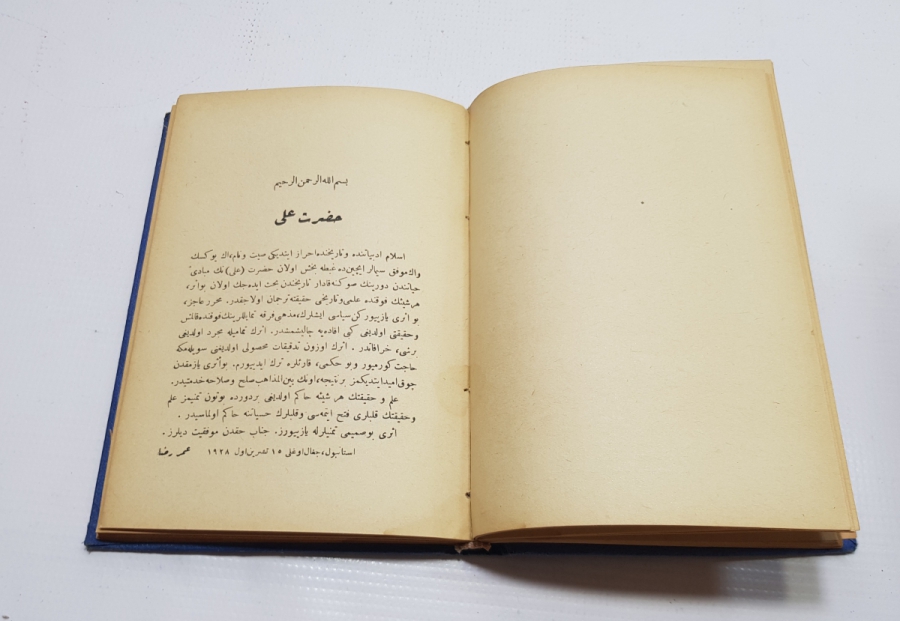 بسم الله الرحمن الرحيم
حضرت علی
اسلام ادبیاتنده و تاریخنده احراز ایتدیکی صیت و نام، اك یوكسك
واك موفق سیمالر ایچین ده غبطه بخش اولان حضرت (علی) نك مبادئ
حیاتندن دورینك صوكنه قادار تاریخندن بحث ایده جك اولان بو اثر،
هر شیئك فوقنده علمی و تاریخی حقیقته ترجمان اولاجقدر. محرر عاجز،
بو اثری یازییوركن سیاسی ایشلرك، مذهبی فرقه تمایللرینك فوقنده قالمش
و حقیقتی اولدیغی كبی افاده یه چالیشمشدر. اثرك تمامیله مجرد اولدیغی
برشی، خرافاتدر. اثرك اوزون تدقیقات محصولی اولدیغنی سویله مكه
حاجت كورمیور و بو حكمی، قارئلره ترك ایدییورم. بو اثری یازمقدن
چوق امید ایتدیكمز بر نتیجه، اونك بین المذاهب صلح و صلاحه خدمتیدر.
علم و حقیقتك هر شیئه حاكم اولدیغی بر دورده بوتون تمنیمز علم
و حقیقتك قلبلری فتح ایتمه سی و قلبلرك حسیاتنه حاكم اولماسیدر.
اثری بو صمیمی تمنیلرله یازییورز. جناب حقدن موفقیت دیلرز.
استانبول، جغال اوغلی ١٥ تشرین اول ١٩٢٨ عمر رضا